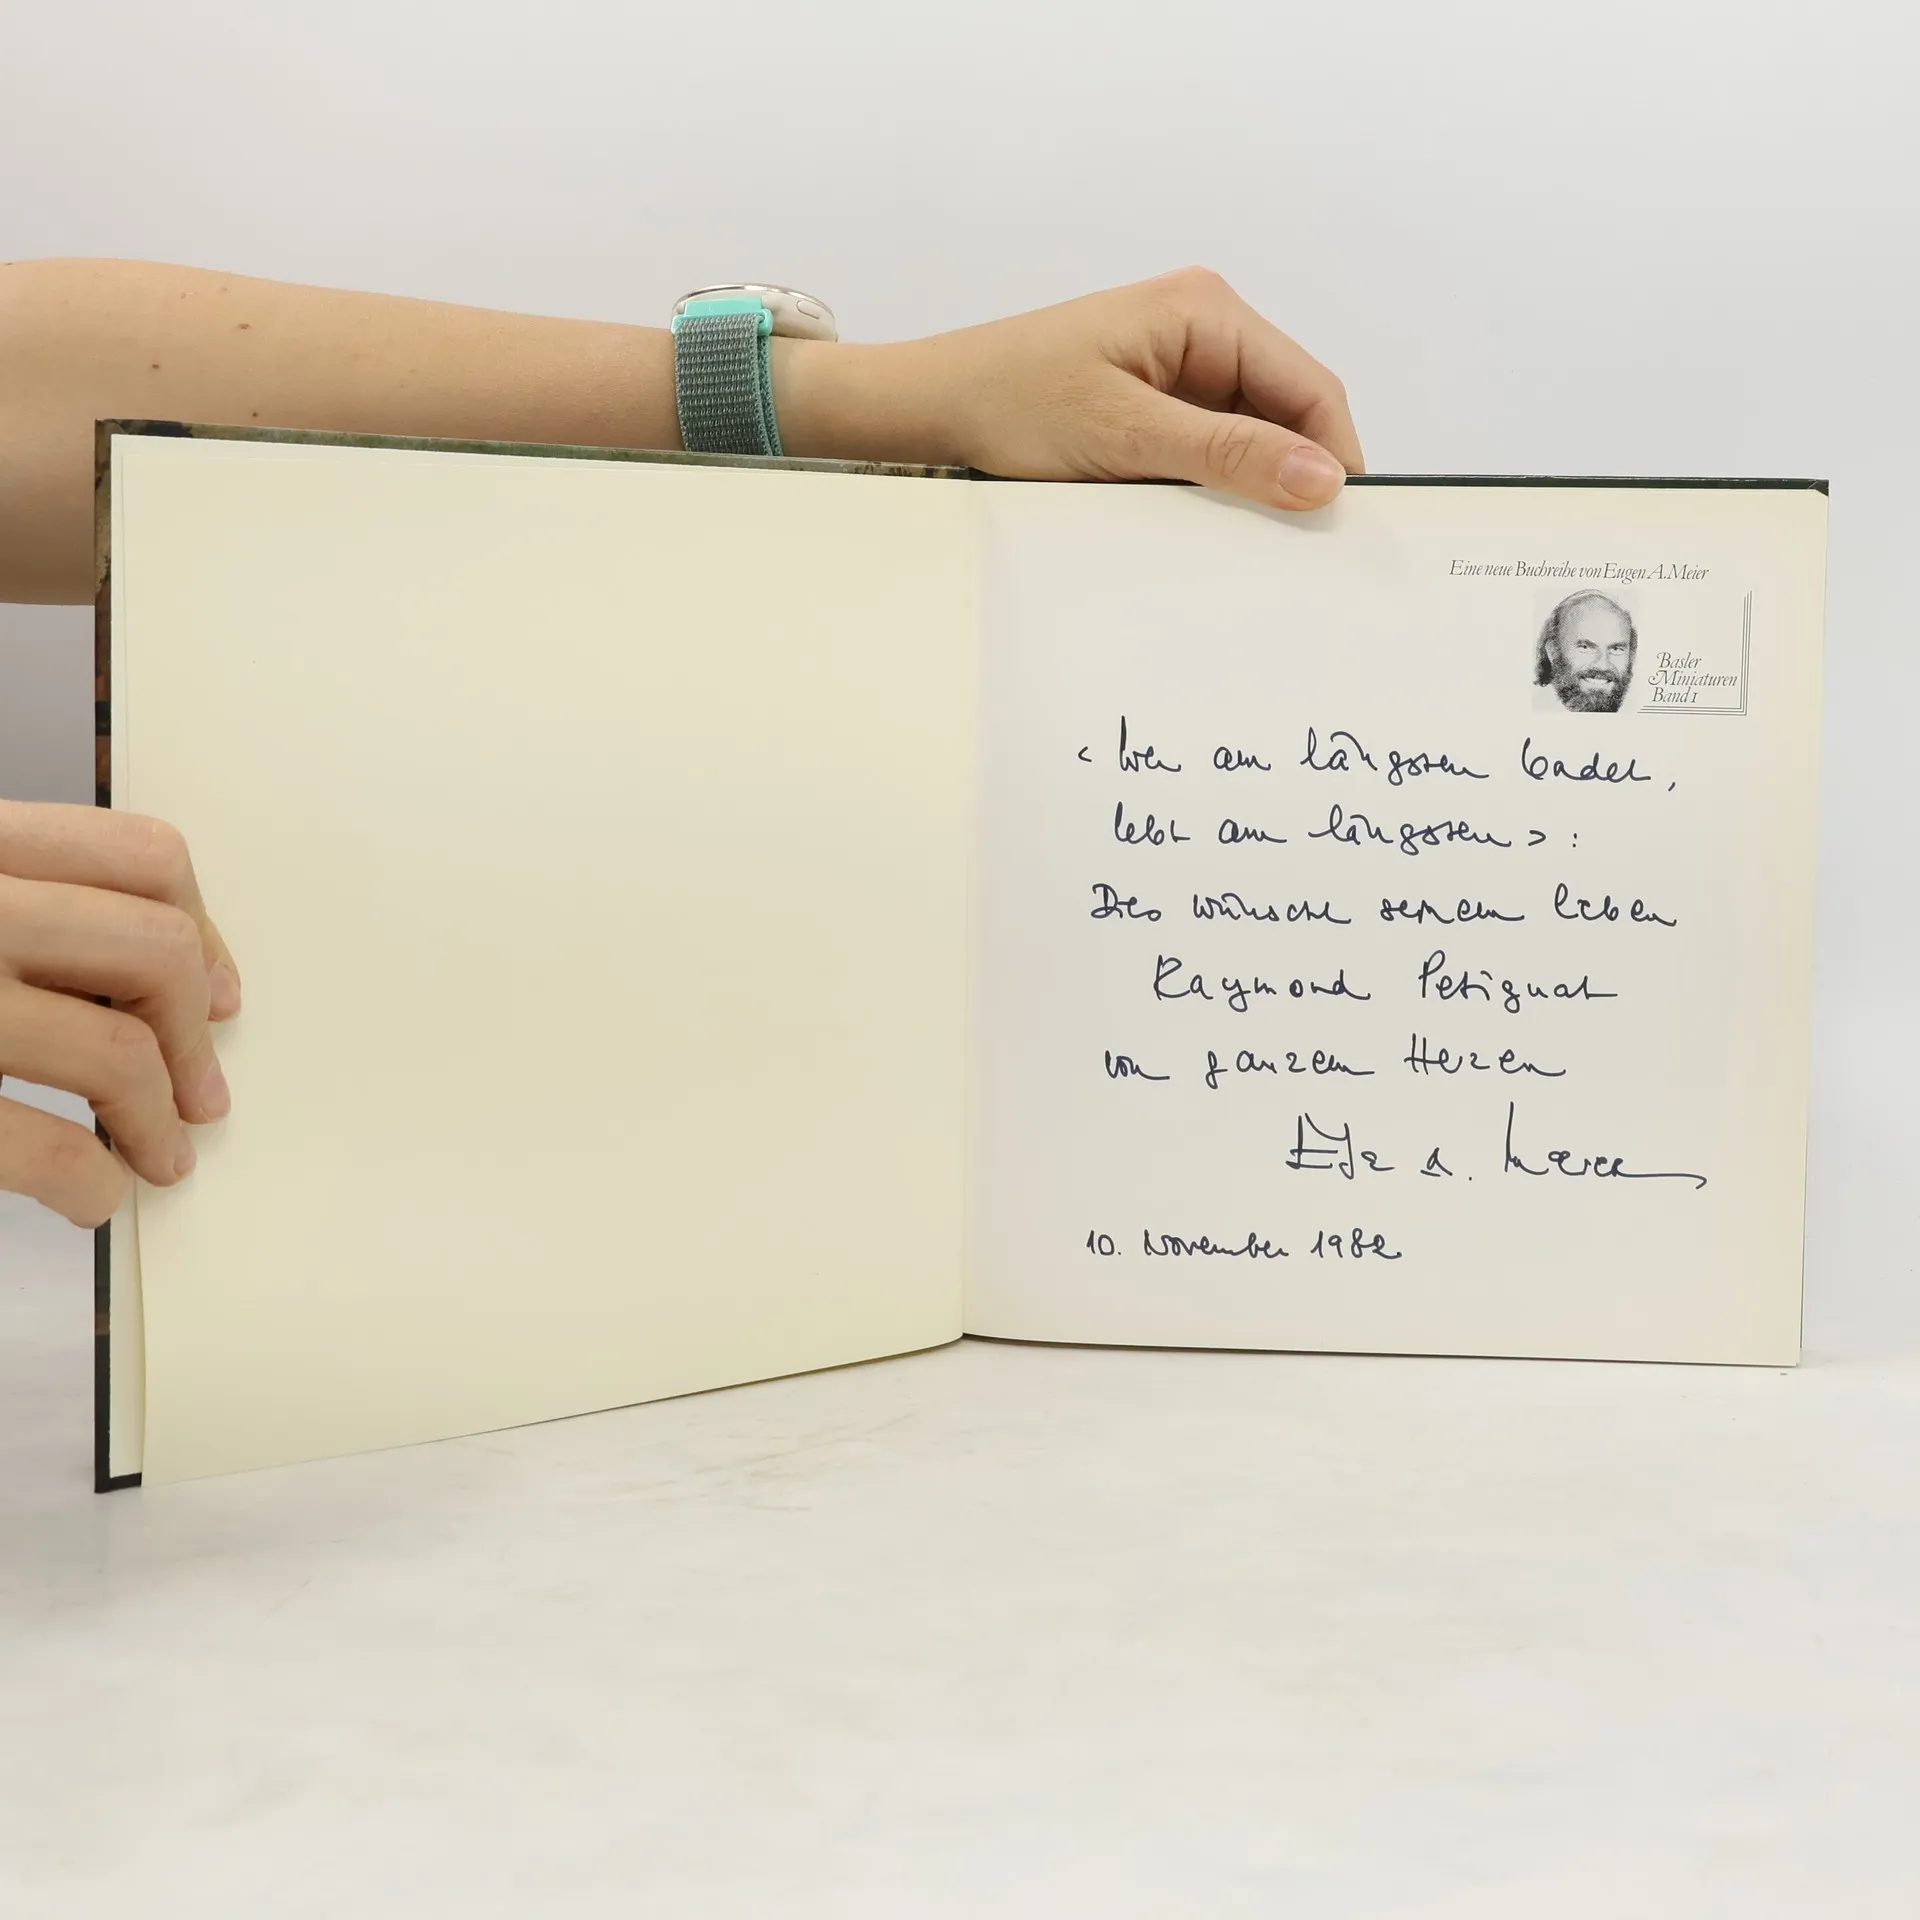 Eine neue Buchreihe von Eugen A. Meier
Basler
Miniaturen
Band 1
< Wer am längsten badet,
lebt am längsten > :
Dies wünscht seinem lieben
Raymond Petignat
von ganzem Herzen
A. Meier
10. November 1982